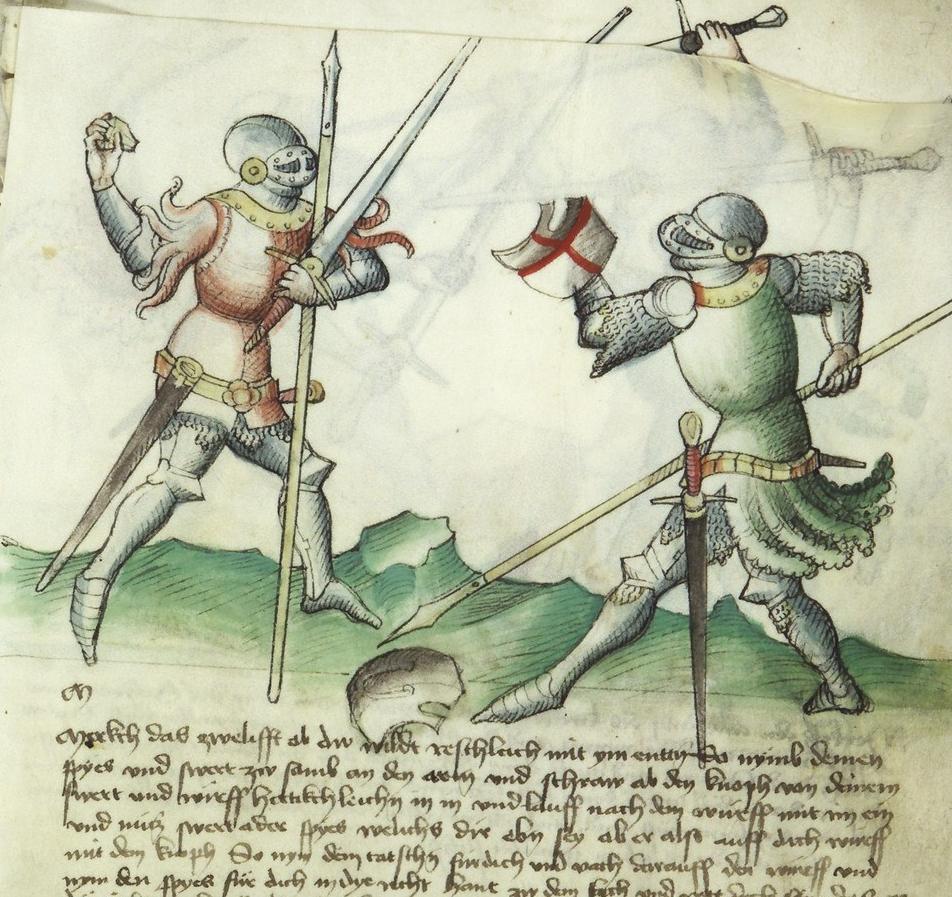 M
Merkch das zwelifft ob dw wildt reschleich mit ym enttn So nymb deinen
spyes und swert zw samb an den arm und schraw ab den knoph von deinem
swert und wirff hertikchleichn in in und lauff nach dem wurff mit im ein
und nucz swert ader spyes welichs dir ebn sey ob er also auff dich wirff
mit dem knoph So nym dein tatschn für dich und vach darauff den wurff und
nym den spyes für dich in dye recht hant zw dem